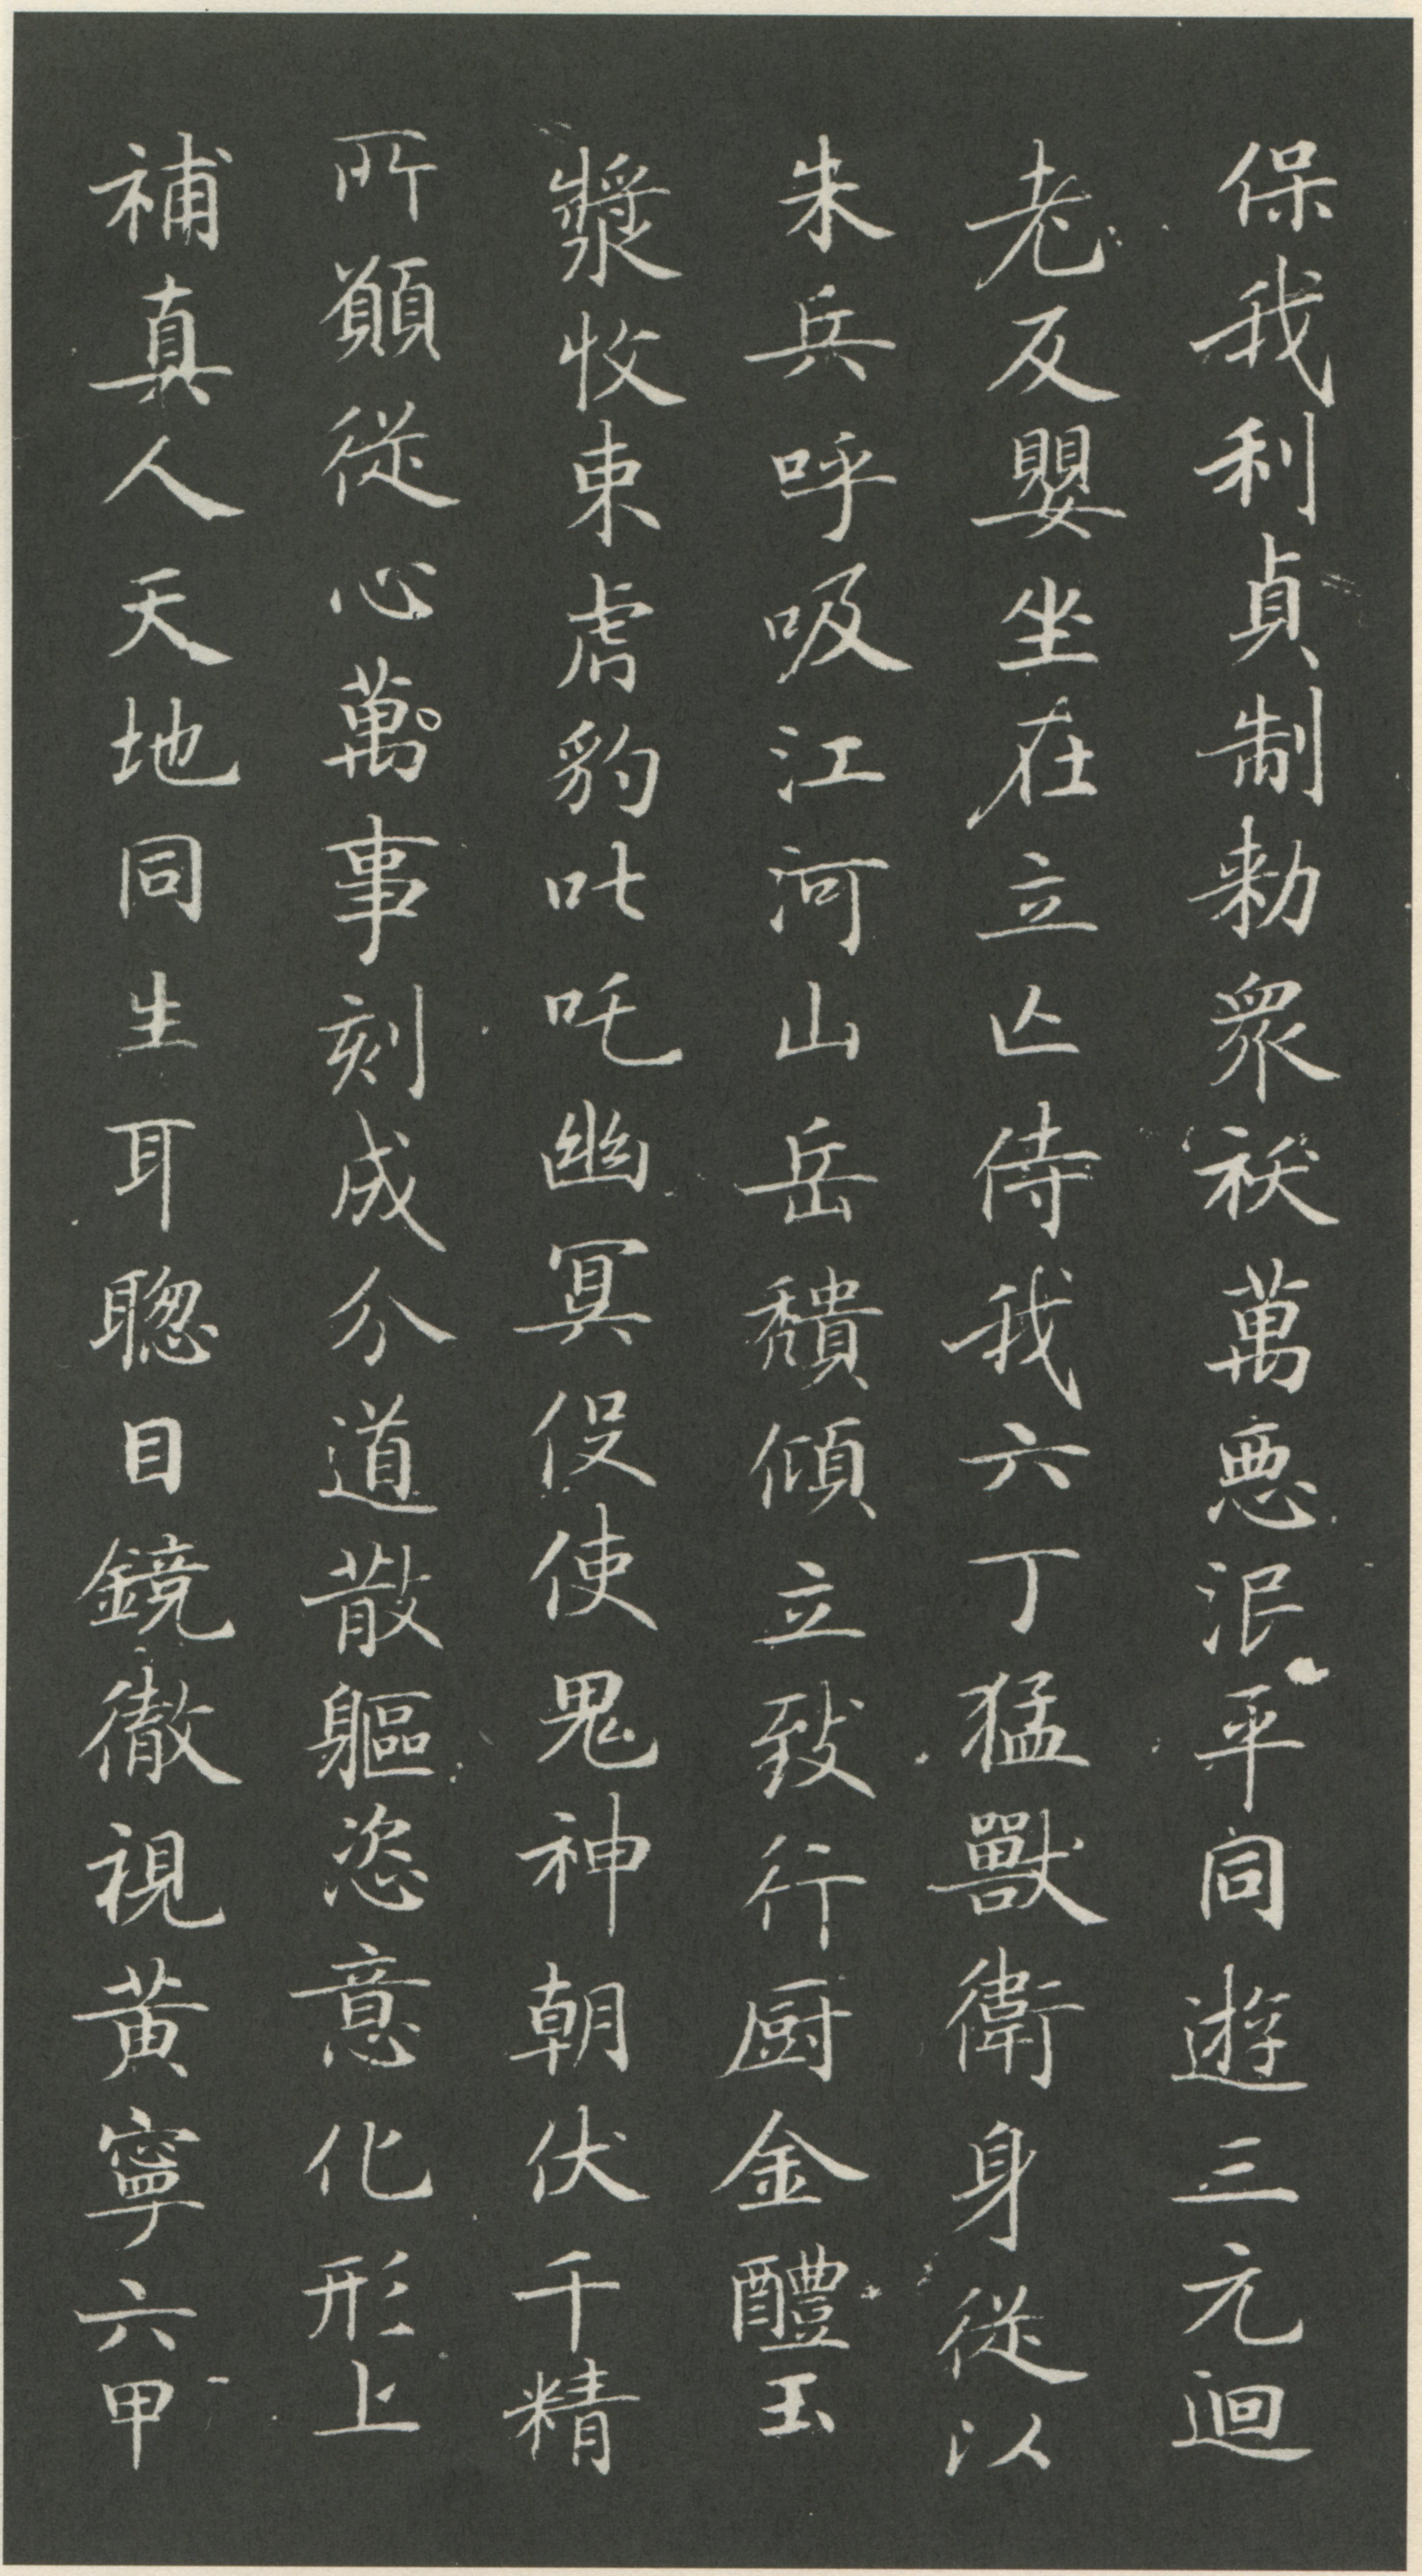 保我利貞制勅衆祅萬惡泯平同遊三元迴
老反嬰坐在立亾侍我六丁猛獸衛身從以
朱兵呼吸江河山岳頹傾立致行厨金醴玉
漿收束虎豹叱吒幽冥役使鬼神朝伏千精
所願從心萬事剋成分道散軀恣意化形上
補真人天地同生耳聰目鏡徹視黃寧六甲